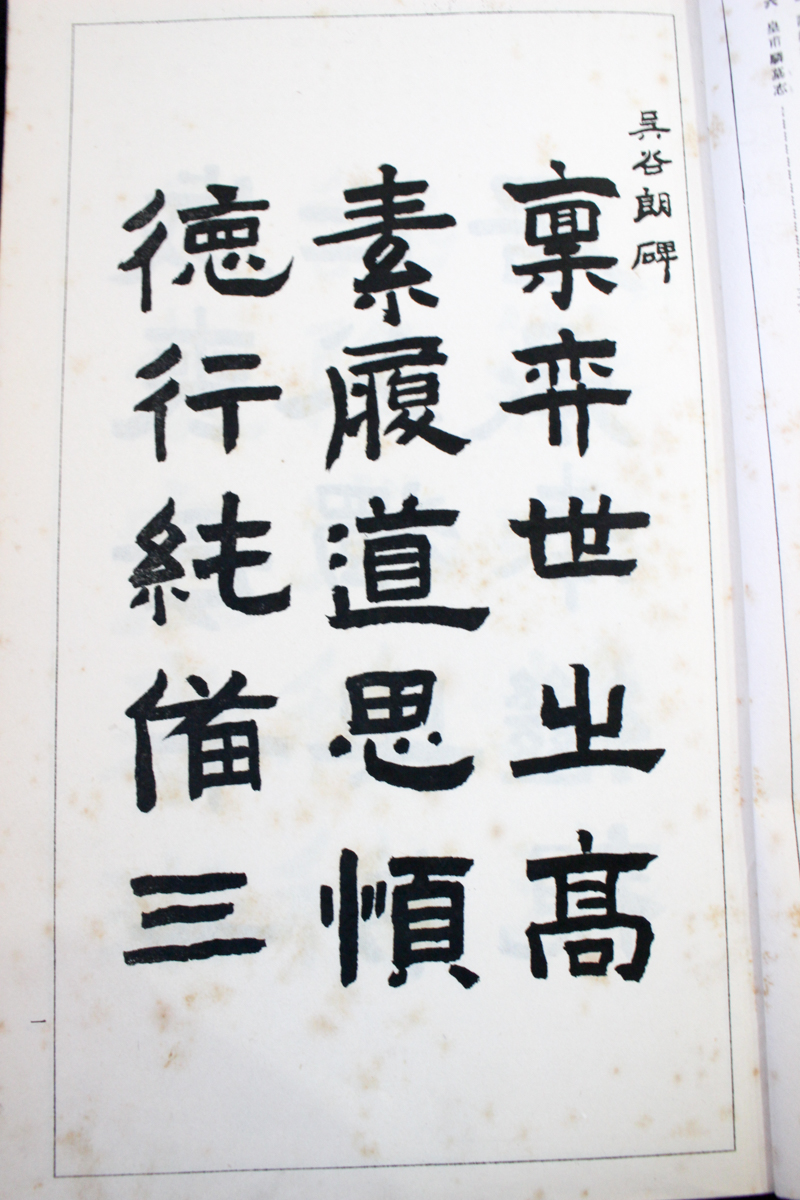 皇甫驎墓志
吳谷朗碑
禀弈世之高
素履道思順
徳行純備三
一